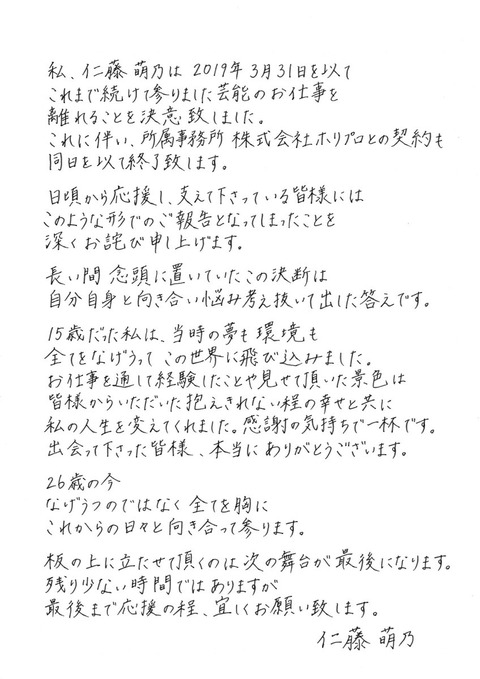 私、仁藤 萌乃は 2019年3月31日を以て
これまで続けて参りました芸能のお仕事を
離れることを決意致しました。
これに伴い、所属事務所 株式会社ホリプロとの契約も
同日を以て終了致します。
日頃から応援し、支えて下さっている皆様には
このような形でのご報告となってしまったことを
深くお詫び申し上げます。
長い間 念頭に置いていたこの決断は
自分自身と向き合い悩み考え抜いて出した答えです。
15歳だった私は、当時の夢も環境も
全てをなげうって この世界に飛び込みました。
お仕事を通して経験したことや見せて頂いた景色は
皆様からいただいた抱えきれない程の幸せと共に
私の人生を変えてくれました。感謝の気持ちで一杯です。
出会って下さった皆様、本当に ありがとうございます。
26歳の今
なげうつのではなく 全てを胸に
これからの日々と向き合って参ります。
板の上に立たせて頂くのは 次の舞台が 最後になります。
残り少ない時間ではありますが
最後まで応援の程、宜しくお願い致します。
仁藤 萌乃